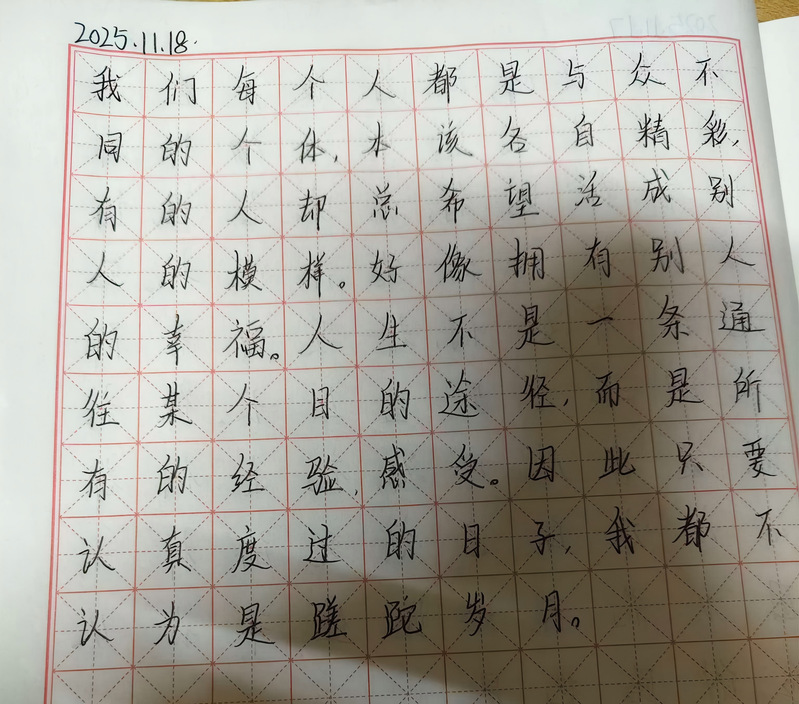 2025.11.18.
我们每个人都是与众不
同的个体,本该各自精彩,
有的人却总希望活成别
人的模样。好像拥有别人
的幸福。人生不是一条通
往某个目的途径,而是所
有的经验,感受。因此只要
认真度过的日子,我都不
认为是蹉跎岁月。